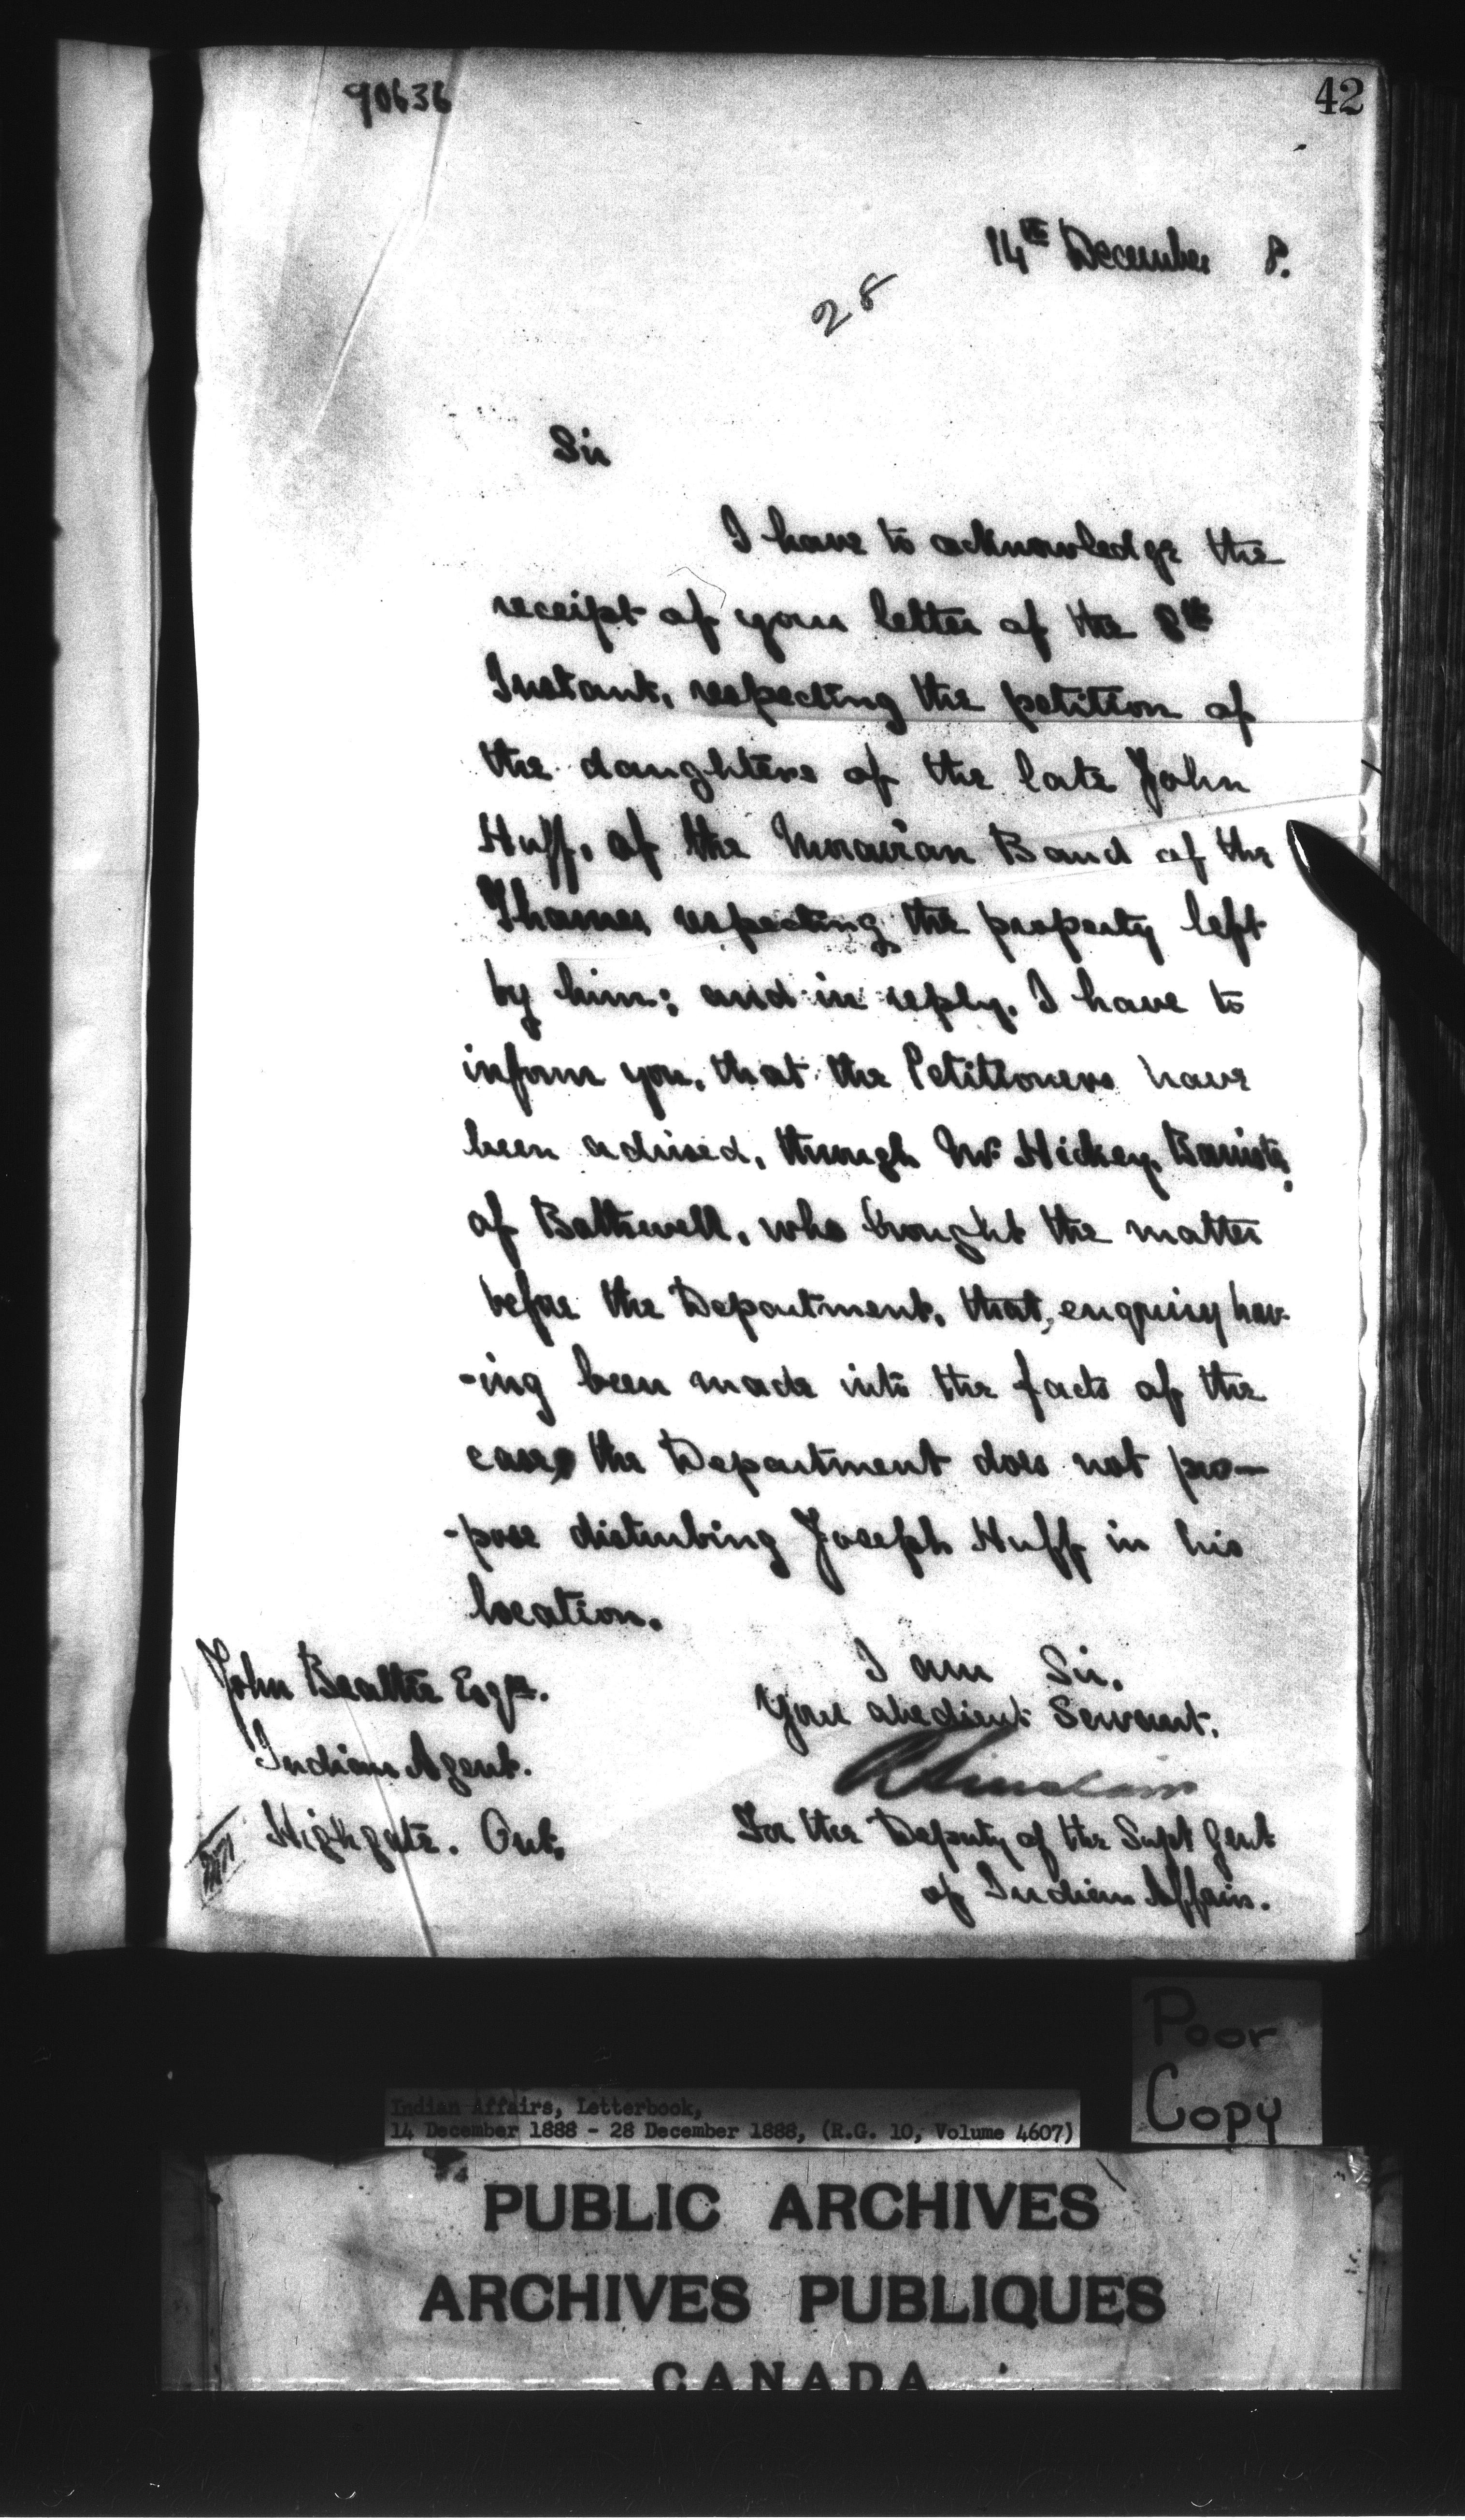 90636
42
14th December 8.
28
Sir
I have to acknowledge the
receipt of your letter of the 8th
Instant, respecting the petition of
the daughters of the late John
Huff, of the Moravian Band of the
Thames respecting the property left
by him; and in reply, I have to
inform you, that the Petitioners have
been advised, through Mr Hickey, Barrister,
of Bothwell, who brought the matter
before the Department, that, enquiry hav-
-ing been made into the facts of the
case, the Department does not pro-
-pose disturbing Joseph Huff in his
location.
I am Sir,
Your obedient Servant,
R Sinclair
For the Deputy of the Supt Genl
of Indian Affairs.
John Beattie Esqre.
Indian Agent.
Highgate. Ont.
Poor
Copy
Indian Affairs, Letterbook,
14 December 1888 - 28 December 1888, (R.G. 10, Volume 4607)
PUBLIC ARCHIVES
ARCHIVES PUBLIQUES
CANADA